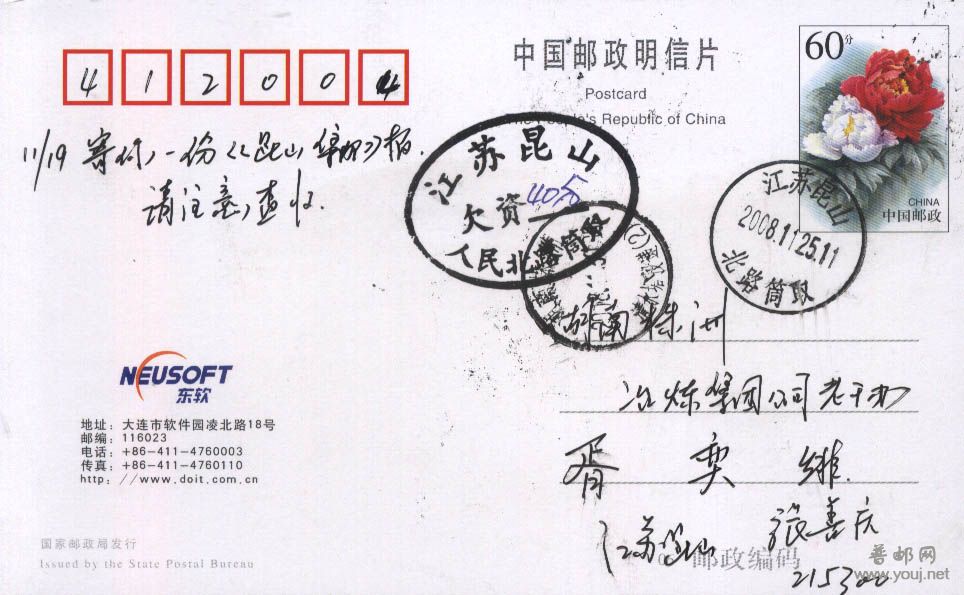 中国邮政明信片
Postcard
The People's Republic of China
60分
CHINA
中国邮政
412004
11/19 寄你一份《昆山集邮》报.
请注意查收.
江苏昆山
欠资 40分
人民北路筒取
江苏昆山
2008.11.25.11
北路筒取
湖南株洲
冶炼集团公司老干办
胥奕维
江苏昆山 张善庆
邮政编码
215300
NEUSOFT
东软
地址: 大连市软件园凌北路18号
邮编: 116023
电话: +86-411-4760003
传真: +86-411-4760110
http: //www.doit.com.cn
国家邮政局发行
Issued by the State Postal Bureau
普邮网
www.youj.net